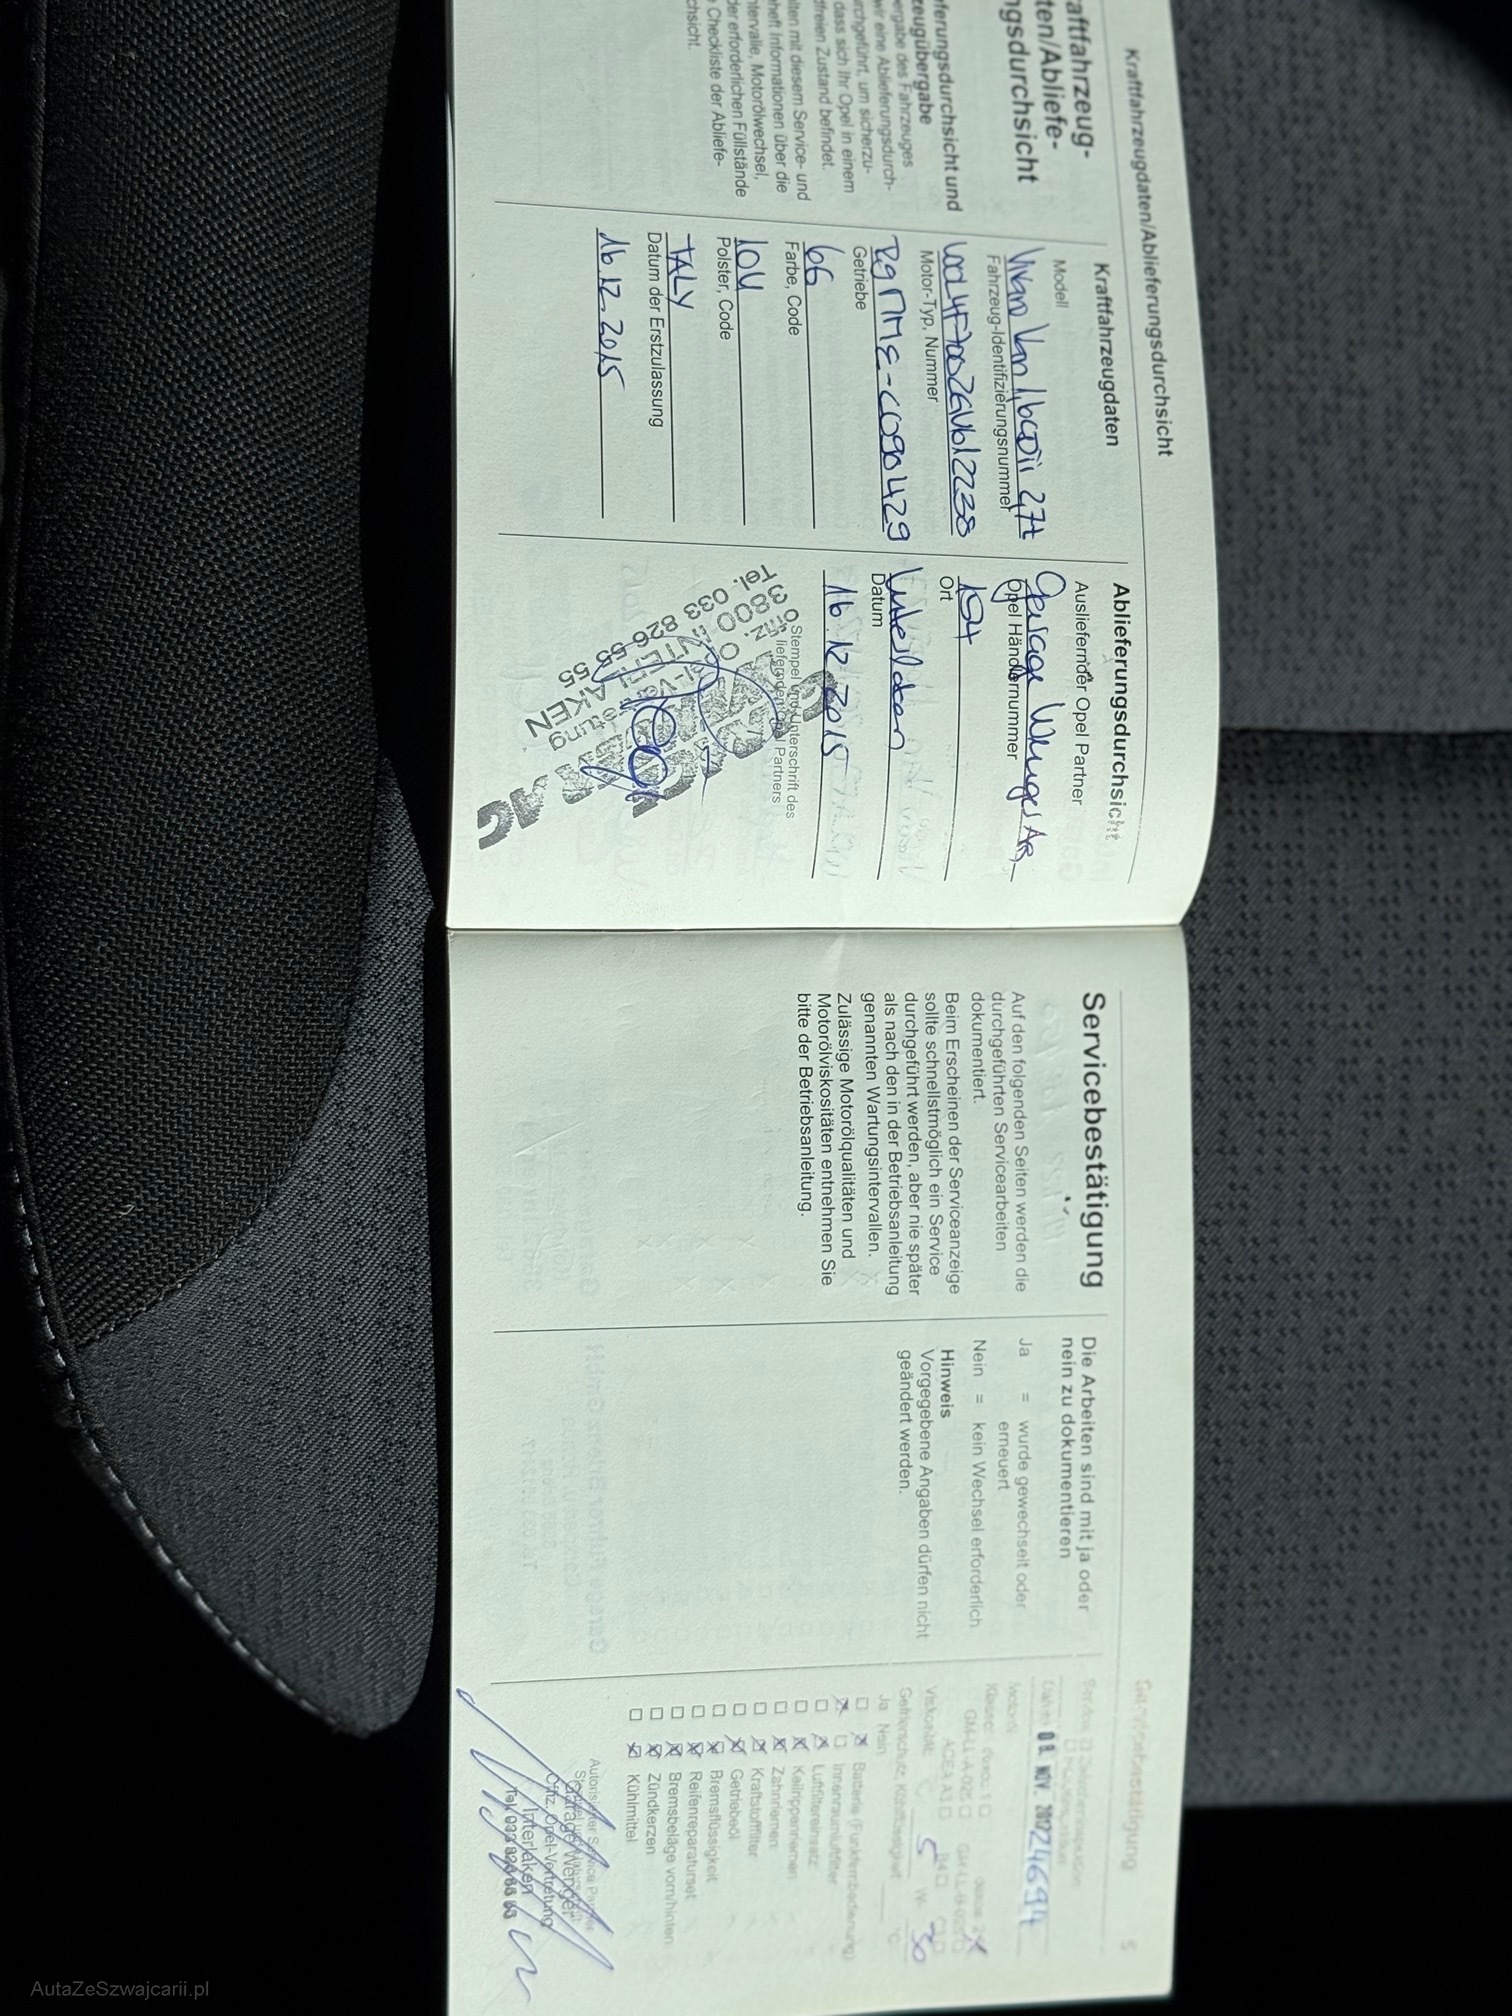 Kraftfahrzeugdaten/Ablieferungsdurchsicht
raftfahrzeug-
ten/Abliefe-
ngsdurchsicht
eferungsdurchsicht und
zeugübergabe
ergabe des Fahrzeuges
wir eine Ablieferungsdurch-
rchgeführt, um sicherzu-
dass sich Ihr Opel in einem
dfreien Zustand befindet.
lten mit diesem Service- und
heft Informationen über die
ntervalle, Motorölwechsel,
der erforderlichen Füllstände
e Checkliste der Abliefe-
chsicht.
Kraftfahrzeugdaten
Modell
Vivaro Van
2,7t
Fahrzeug-Identifizierungsnummer
Motor-Typ, Nummer
R9MME-C090429
Getriebe
66
Farbe, Code
10U
Polster, Code
TALY
Datum der Erstzulassung
16.12.2015
Ablieferungsdurchsicht
Ausliefernder Opel Partner
Garage Wenger AG
Opel Händlernummer
154
Ort
Interlaken
Datum
16.12.2015
Stempel und Unterschrift des
liefernden Opel Partners
3800 INTERLAKEN
Tel. 033 826 55 55
Servicebestätigung
Auf den folgenden Seiten werden die
durchgeführten Servicearbeiten
dokumentiert.
Beim Erscheinen der Serviceanzeige
sollte schnellstmöglich ein Service
durchgeführt werden, aber nie später
als nach den in der Betriebsanleitung
genannten Wartungsintervallen.
Zulässige Motorölqualitäten und
Motorölviskositäten entnehmen Sie
bitte der Betriebsanleitung.
Die Arbeiten sind mit ja oder
nein zu dokumentieren
Ja = wurde gewechselt oder
erneuert
Nein = kein Wechsel erforderlich
Hinweis
Vorgegebene Angaben dürfen nicht
geändert werden.
Servicebestätigung 5
08. NOV. 2017 24694
GM-LL-A-025
Viskosität: 5 W- 30
Gefrierschutz, Kühlflüssigkeit °C
Ja Nein
Batterie (Funkfernbedienung)
Innenraumluftfilter
Luftfiltereinsatz
Keilrippenriemen
Zahnriemen
Kraftstofffilter
Getriebeöl
Bremsflüssigkeit
Reifenreparaturset
Bremsbeläge vorn/hinten
Zündkerzen
Kühlmittel
Autorisierter Service Partner
Garage Wenger
Offiz. Opel-Vertretung
Interlaken
AutaZeSzwajcarii.pl